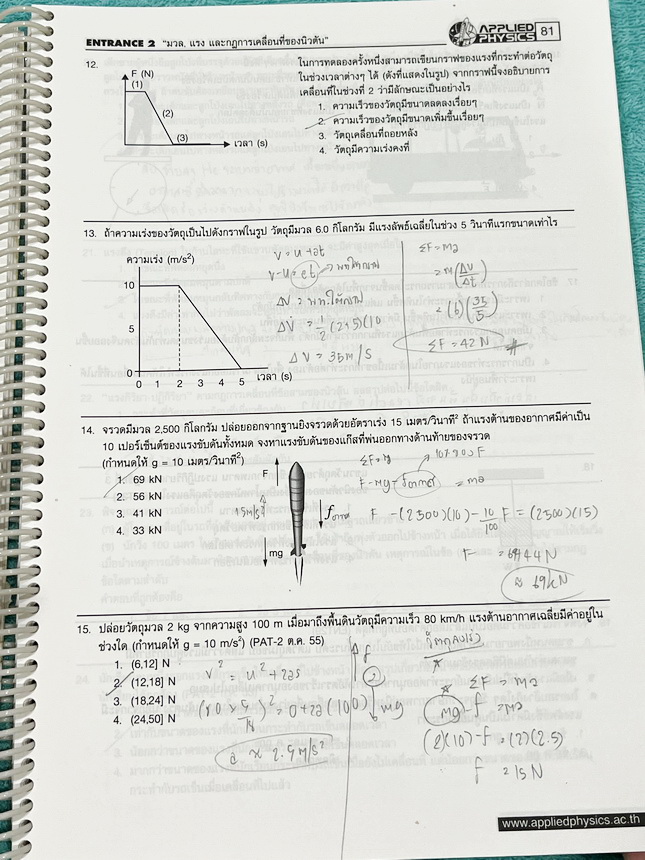 ENTRANCE 2 "มวล, แรง และกฎการเคลื่อนที่ของนิวตัน"
APPLIED PHYSICS 81
12.
ในการทดลองครั้งหนึ่งสามารถเขียนกราฟของแรงที่กระทำต่อวัตถุ
ในช่วงเวลาต่างๆ ได้ (ดังที่แสดงในรูป) จากกราฟนี้จงอธิบายการ
เคลื่อนที่ในช่วงที่ 2 ว่ามีลักษณะเป็นอย่างไร
1. ความเร็วของวัตถุมีขนาดลดลงเรื่อยๆ
2. ความเร็วของวัตถุมีขนาดเพิ่มขึ้นเรื่อยๆ
3. วัตถุเคลื่อนที่ถอยหลัง
4. วัตถุมีความเร็วคงที่
F (N)
(1)
(2)
(3)
เวลา (s)
13. ถ้าความเร่งของวัตถุเป็นไปดังกราฟในรูป วัตถุมีมวล 6.0 กิโลกรัม มีแรงลัพธ์เฉลี่ยในช่วง 5 วินาทีแรกขนาดเท่าไร
ความเร่ง (m/s²)
10
5
0
0 1 2 3 4 5 เวลา (s)
v = u + at
v-u = at
Δv = พ.ท.ใต้กราฟ
Δv = 1/2 (2+5)(10
Δv = 35 m/s
ΣF = ma
= m(Δv/Δt)
= (6)(35/5)
ΣF = 42 N
14. จรวดมีมวล 2,500 กิโลกรัม ปล่อยออกจากฐานยิงจรวดด้วยอัตราเร่ง 15 เมตร/วินาที² ถ้าแรงต้านของอากาศมีค่าเป็น
10 เปอร์เซ็นต์ของแรงขับดันทั้งหมด จงหาแรงขับดันของแก๊สที่พ่นออกทางด้านท้ายของจรวด
(กำหนดให้ g = 10 เมตร/วินาที²)
1. 69 kN
2. 56 kN
3. 41 kN
4. 33 kN
F
15 m/s²
mg
f อากาศ
F - mg - f อากาศ = ma
F - (2500)(10) - 10/100 F = (2500)(15)
F = 69444 N
≈ 69 kN
15. ปล่อยวัตถุมวล 2 kg จากความสูง 100 m เมื่อมาถึงพื้นดินวัตถุมีความเร็ว 80 km/h แรงต้านอากาศเฉลี่ยมีค่าอยู่ใน
ช่วงใด (กำหนดให้ g = 10 m/s²) (PAT-2 ต.ค. 55)
1. (6,12] N
2. (12,18] N
3. (18,24] N
4. (24,50] N
v² = u² + 2as
(80 × 5/18)² = 0 + 2a(100)
a ≈ 2.5 m/s²
f
mg
ΣF = ma
mg - f = ma
(2)(10) - f = (2)(2.5)
f = 15 N
www.appliedphysics.ac.th